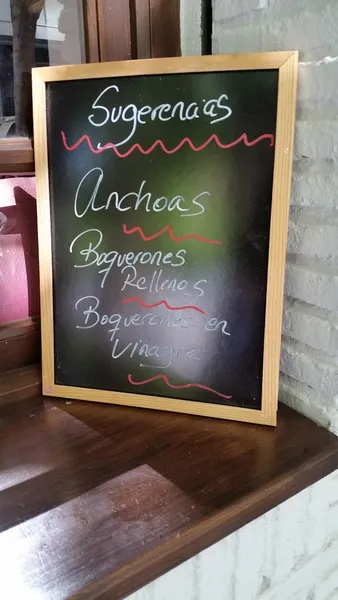 Sugerencias
Anchoas
Boquerones
Rellenos
Boquerones en
Vinagre